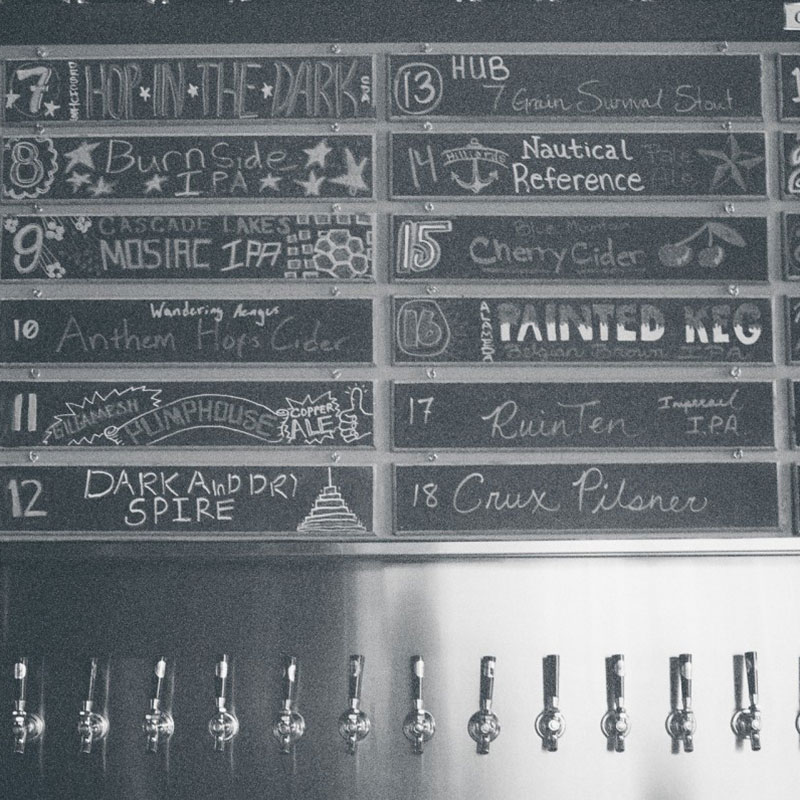 7 HOP·IN·THE·DARK
8 BurnSide
IPA
9 CASCADE LAKES
MOSIAC IPA
Wandering Aengus
10 Anthem Hops Cider
11 GILGAMESH PUMPHOUSE COPPER ALE
12 DARK AND DRY
SPIRE
13 HUB
7 Grain Survival Stout
14 Nautical Pale
Reference Ale
Blue Mountain
15 Cherry Cider
16 ALAMEDA PAINTED KEG
Belgian Brown IPA
17 Ruin Ten Imperial
IPA
18 Crux Pilsner